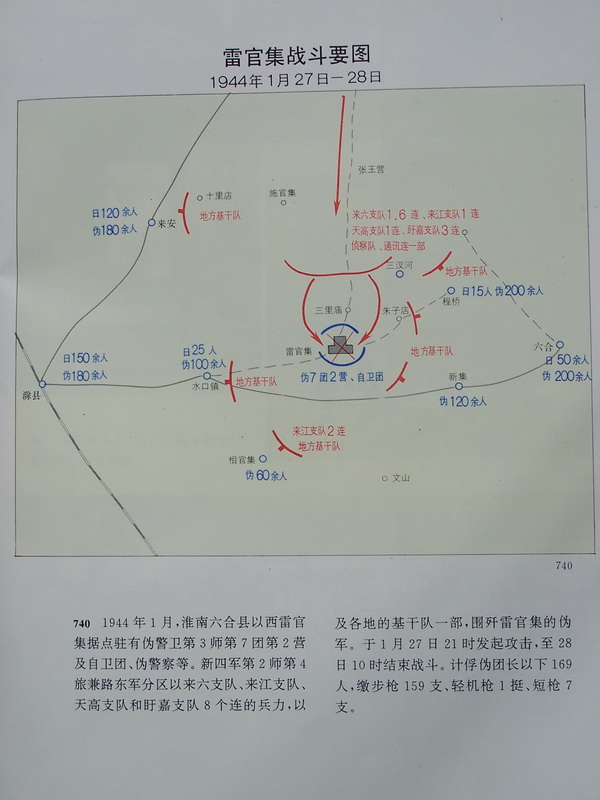 雷官集战斗要图
1944年1月27日—28日
张王营
十里店
施官集
日120余人
伪180余人
来安
地方基干队
来六支队1、6连、来江支队1连
天高支队1连、盱嘉支队3连
侦察队、通讯连一部
三汊河
地方基干队
日15人 伪200余人
程桥
三里庙
朱子店
雷官集
地方基干队
六合
日50余人
伪200余人
日150余人
伪180余人
滁县
日25人
伪100余人
水口镇
地方基干队
伪7团2营、自卫团
新集
伪120余人
来江支队2连
地方基干队
相官集
伪60余人
文山
740
740 1944年1月,淮南六合县以西雷官
集据点驻有伪警卫第3师第7团第2营
及自卫团、伪警察等。新四军第2师第4
旅兼路东军分区以来六支队、来江支队、
天高支队和盱嘉支队8个连的兵力,以
及各地的基干队一部,围歼雷官集的伪
军。于1月27日21时发起攻击,至28
日10时结束战斗。计俘伪团长以下169
人,缴步枪159支、轻机枪1挺、短枪7
支。